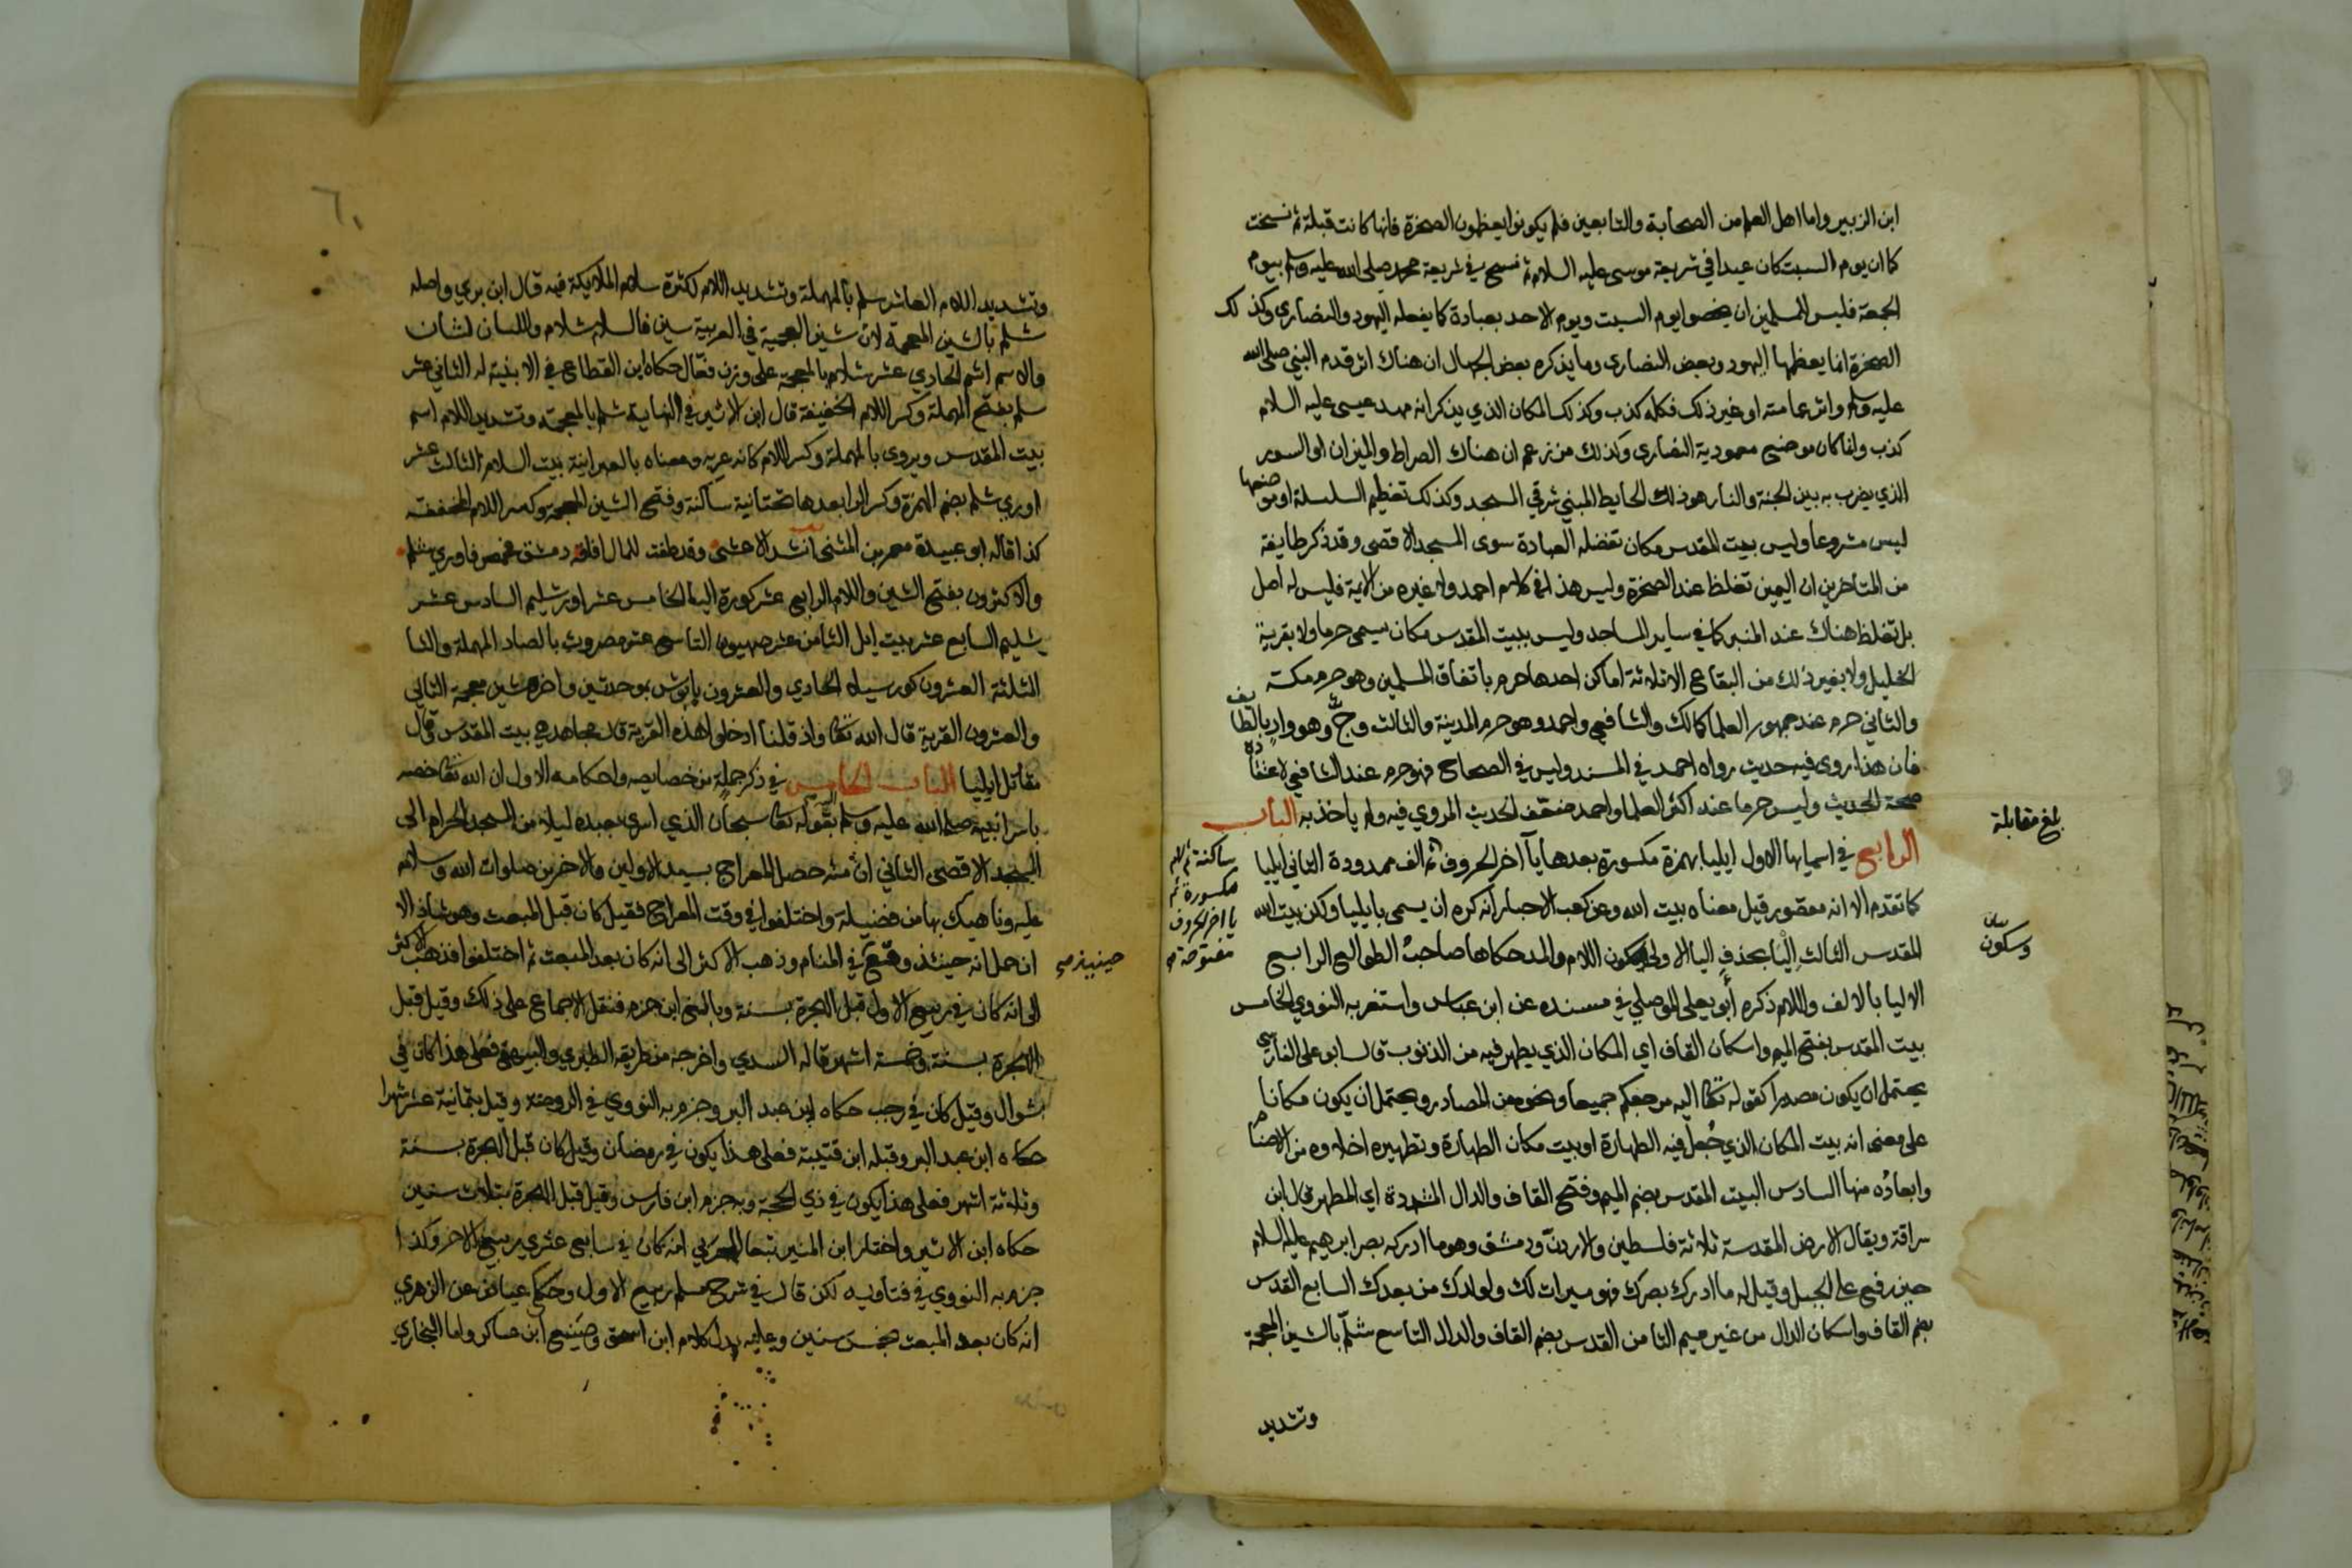 ابن الزبير واما اهل العلم من الصحابة والتابعين فلم يكونوا يعظمون الصخرة فانها كانت قبلة ثم نسخت
كما ان يوم السبت كان عيدا في شريعة موسى عليه السلام ثم نسخ في شريعة محمد صلى الله عليه وسلم بيوم
الجمعة فليس للمسلمين ان يخصوا يوم السبت ويوم الاحد بعبادة كما يفعله اليهود والنصارى وكذلك
الصخرة انما يعظمها اليهود وبعض النصارى وما يذكره بعض الجهال ان هناك اثر قدم النبي صلى الله
عليه وسلم واثر عمامته او غير ذلك فكله كذب وكذلك المكان الذي يذكر انه مهد عيسى عليه السلام
كذب وانما كان موضع معمودية النصارى وكذلك من زعم ان هناك الصراط والميزان او السور
الذي يضرب به بين الجنة والنار هو ذلك الحايط المبني شرقي المسجد وكذلك تعظيم السلسلة او موضعها
ليس مشروعا وليس ببيت المقدس مكان تفضله العبادة سوى المسجد الاقصى وقد ذكر طايفة
من المتاخرين ان اليمين تغلظ عند الصخرة وليس هذا في كلام احمد ولا غيره من الايمة فليس له اصل
بل تغلظ هناك عند المنبر كما في ساير المساجد وليس ببيت المقدس مكان يسمى حرما ولا بقرية
الخليل ولا بغير ذلك من البقاع الا ثلاثة اماكن احدها حرم باتفاق المسلمين وهو حرم مكة
والثاني حرم عند جمهور العلما كمالك والشافعي واحمد وهو حرم المدينة والثالث وج وهو واد بالطايف
فان هذا روى فيه حديث رواه احمد في المسند وليس في الصحاح فهو حرم عند الشافعي لاعتقاده
صحة الحديث وليس حرما عند اكثر العلما واحمد ضعف الحديث المروي فيه ولم ياخذ به الباب
بلغ مقابلة
الرابع في اسمايها الاول ايليا بهمزة مكسورة بعدها يآ آخر الحروف ثم الف ممدودة الثاني ايليا
ساكنة ثم لام
مكسورة ثم
يا اخر الحروف
مفتوحة صح
كما تقدم الا انه مقصور قيل معناه بيت الله وعن كعب الاحبار انه كره ان يسمى بايليا ولكن بيت الله
المقدس الثالث اليا بحذف اليا الاولى وسكون اللام والمد حكاها صاحب الطوالع الرابع
بيان
وسكون
الاليا بالالف واللام ذكره أبو يعلى الموصلي في مسنده عن ابن عباس واستغربه النووي الخامس
بيت المقدس بفتح الميم واسكان القاف اي المكان الذي يطهر فيه من الذنوب قال ابو على الفارسي
يحتمل ان يكون مصدرا كقوله تعالى اليه مرجعكم جميعا ونحوه من المصادر ويحتمل ان يكون مكانا
على معنى انه بيت المكان الذي جُعل فيه الطهارة او بيت مكان الطهارة وتطهيره اخلاوه من الاصنام
وابعادُه منها السادس البيت المقدس بضم الميم وفتح القاف والدال المشددة اي المطهر قال ابن
سراقة ويقال الارض المقدسة ثلاثة فلسطين والاردنّ ودمشق وهو ما ادركه بصر ابرهيم عليه السلام
حين رفع على الجبل وقيل له ما ادرك بصرك فهو ميراث لك ولولدك من بعدك السابع القدس
بضم القاف واسكان الدال من غير ميم الثامن القدس بضم القاف والدال التاسع شلّم بالشين المعجمة
وتشديد
٦٠
وتشديد اللام العاشر سلم بالمهملة وتشديد اللام لكثرة سلام الملايكة فيه قال ابن بري واصله
شلم بالشين المعجمة لان شين العجمية في العربية سين فالسلام شلام واللسان لشان
والاسم اشم الحادي عشر شلام بالمعجمة على وزن فعّال حكاه ابن القطاع في الابنية له الثاني عشر
سلم بفتح المهملة وكسر اللام الخفيفة قال ابن الاثير في النهاية شلم بالمعجمة وتشديد اللام اسم
بيت المقدس ويروى بالمهملة وكسر اللام كانه عربه ومعناه بالعبرانية بيت السلام الثالث عشر
اوري شلم بضم الهمزة وكسر الرا بعدها تحتانية ساكنة وفتح الشين المعجمة وكسر اللام المخففة
كذا قاله ابو عبيدة معمر بن المثنى انشد الاعشى وقد طفت للمال افاقه دمشق فحمص فاوري شلم
والاكثرون بفتح الشين واللام الرابع عشر كورة اليا الخامس عشر اورشليم السادس عشر
شليم السابع عشر بيت ايل الثامن عشر صهيون التاسع عشر مصروث بالصاد المهملة والثا
المثلثة العشرون كورسيلاه الحادي والعشرون بابوش بموحدتين واخره شين معجمة الثاني
والعشرون القرية قال الله تعالى واذ قلنا ادخلوا هذه القرية قال مجاهد هي بيت المقدس وقال
مقاتل ايليا الباب الخامس في ذكر جملة من خصايصه واحكامه الاول ان الله تعالى خصه
باسرا نبيه صلى الله عليه وسلم اليه بقوله تعالى سبحان الذي اسرى بعبده ليلا من المسجد الحرام الى
المسجد الاقصى الثاني ان منه حصل المعراج بسيد الاولين والاخرين صلوات الله وسلامه
عليه وناهيك بها من فضيلة واختلفوا في وقت المعراج فقيل كان قبل المبعث وهو شاذ الا
ان حمل انه حينئذ وقع في المنام وذهب الاكثر الى انه كان بعد المبعث ثم اختلفوا فذهب الاكثر
حينيذ صح
الى انه كان في ربيع الاول قبل الهجرة بسنة وبالغ ابن حزم فنقل الاجماع على ذلك وقيل قبل
الهجرة بسنة وخمسة اشهر قاله السدي واخرجه من طريقه الطبري والبيهقي فعلى هذا كان في
شوال وقيل كان في رجب حكاه ابن عبد البر وجزم به النووي في الروضة وقيل بثمانية عشر شهرا
حكاه ابن عبد البر وقبله ابن قتيبة فعلى هذا يكون في رمضان وقيل كان قبل الهجرة بسنة
وثلاثة اشهر فعلى هذا يكون في ذي الحجة وبه جزم ابن فارس وقيل قبل الهجرة بثلاث سنين
حكاه ابن الاثير واختار ابن المنير تبعا للحربي انه كان في سابع عشري ربيع الاخر وكذا
جزم به النووي في فتاويه لكن قال في شرح مسلم ربيع الاول وحكى عياض عن الزهري
انه كان بعد المبعث بخمس سنين وعليه يدل كلام ابن اسحق وصنيع ابن عساكر واما البخاري